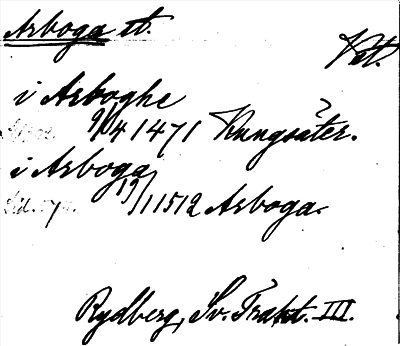 Arboga st.
Vst.
i Arboghe
9/4 1471 Kungsäter.
i Arboga
19/1 1512 Arboga.
Rydberg, Sv. Trakt. III.